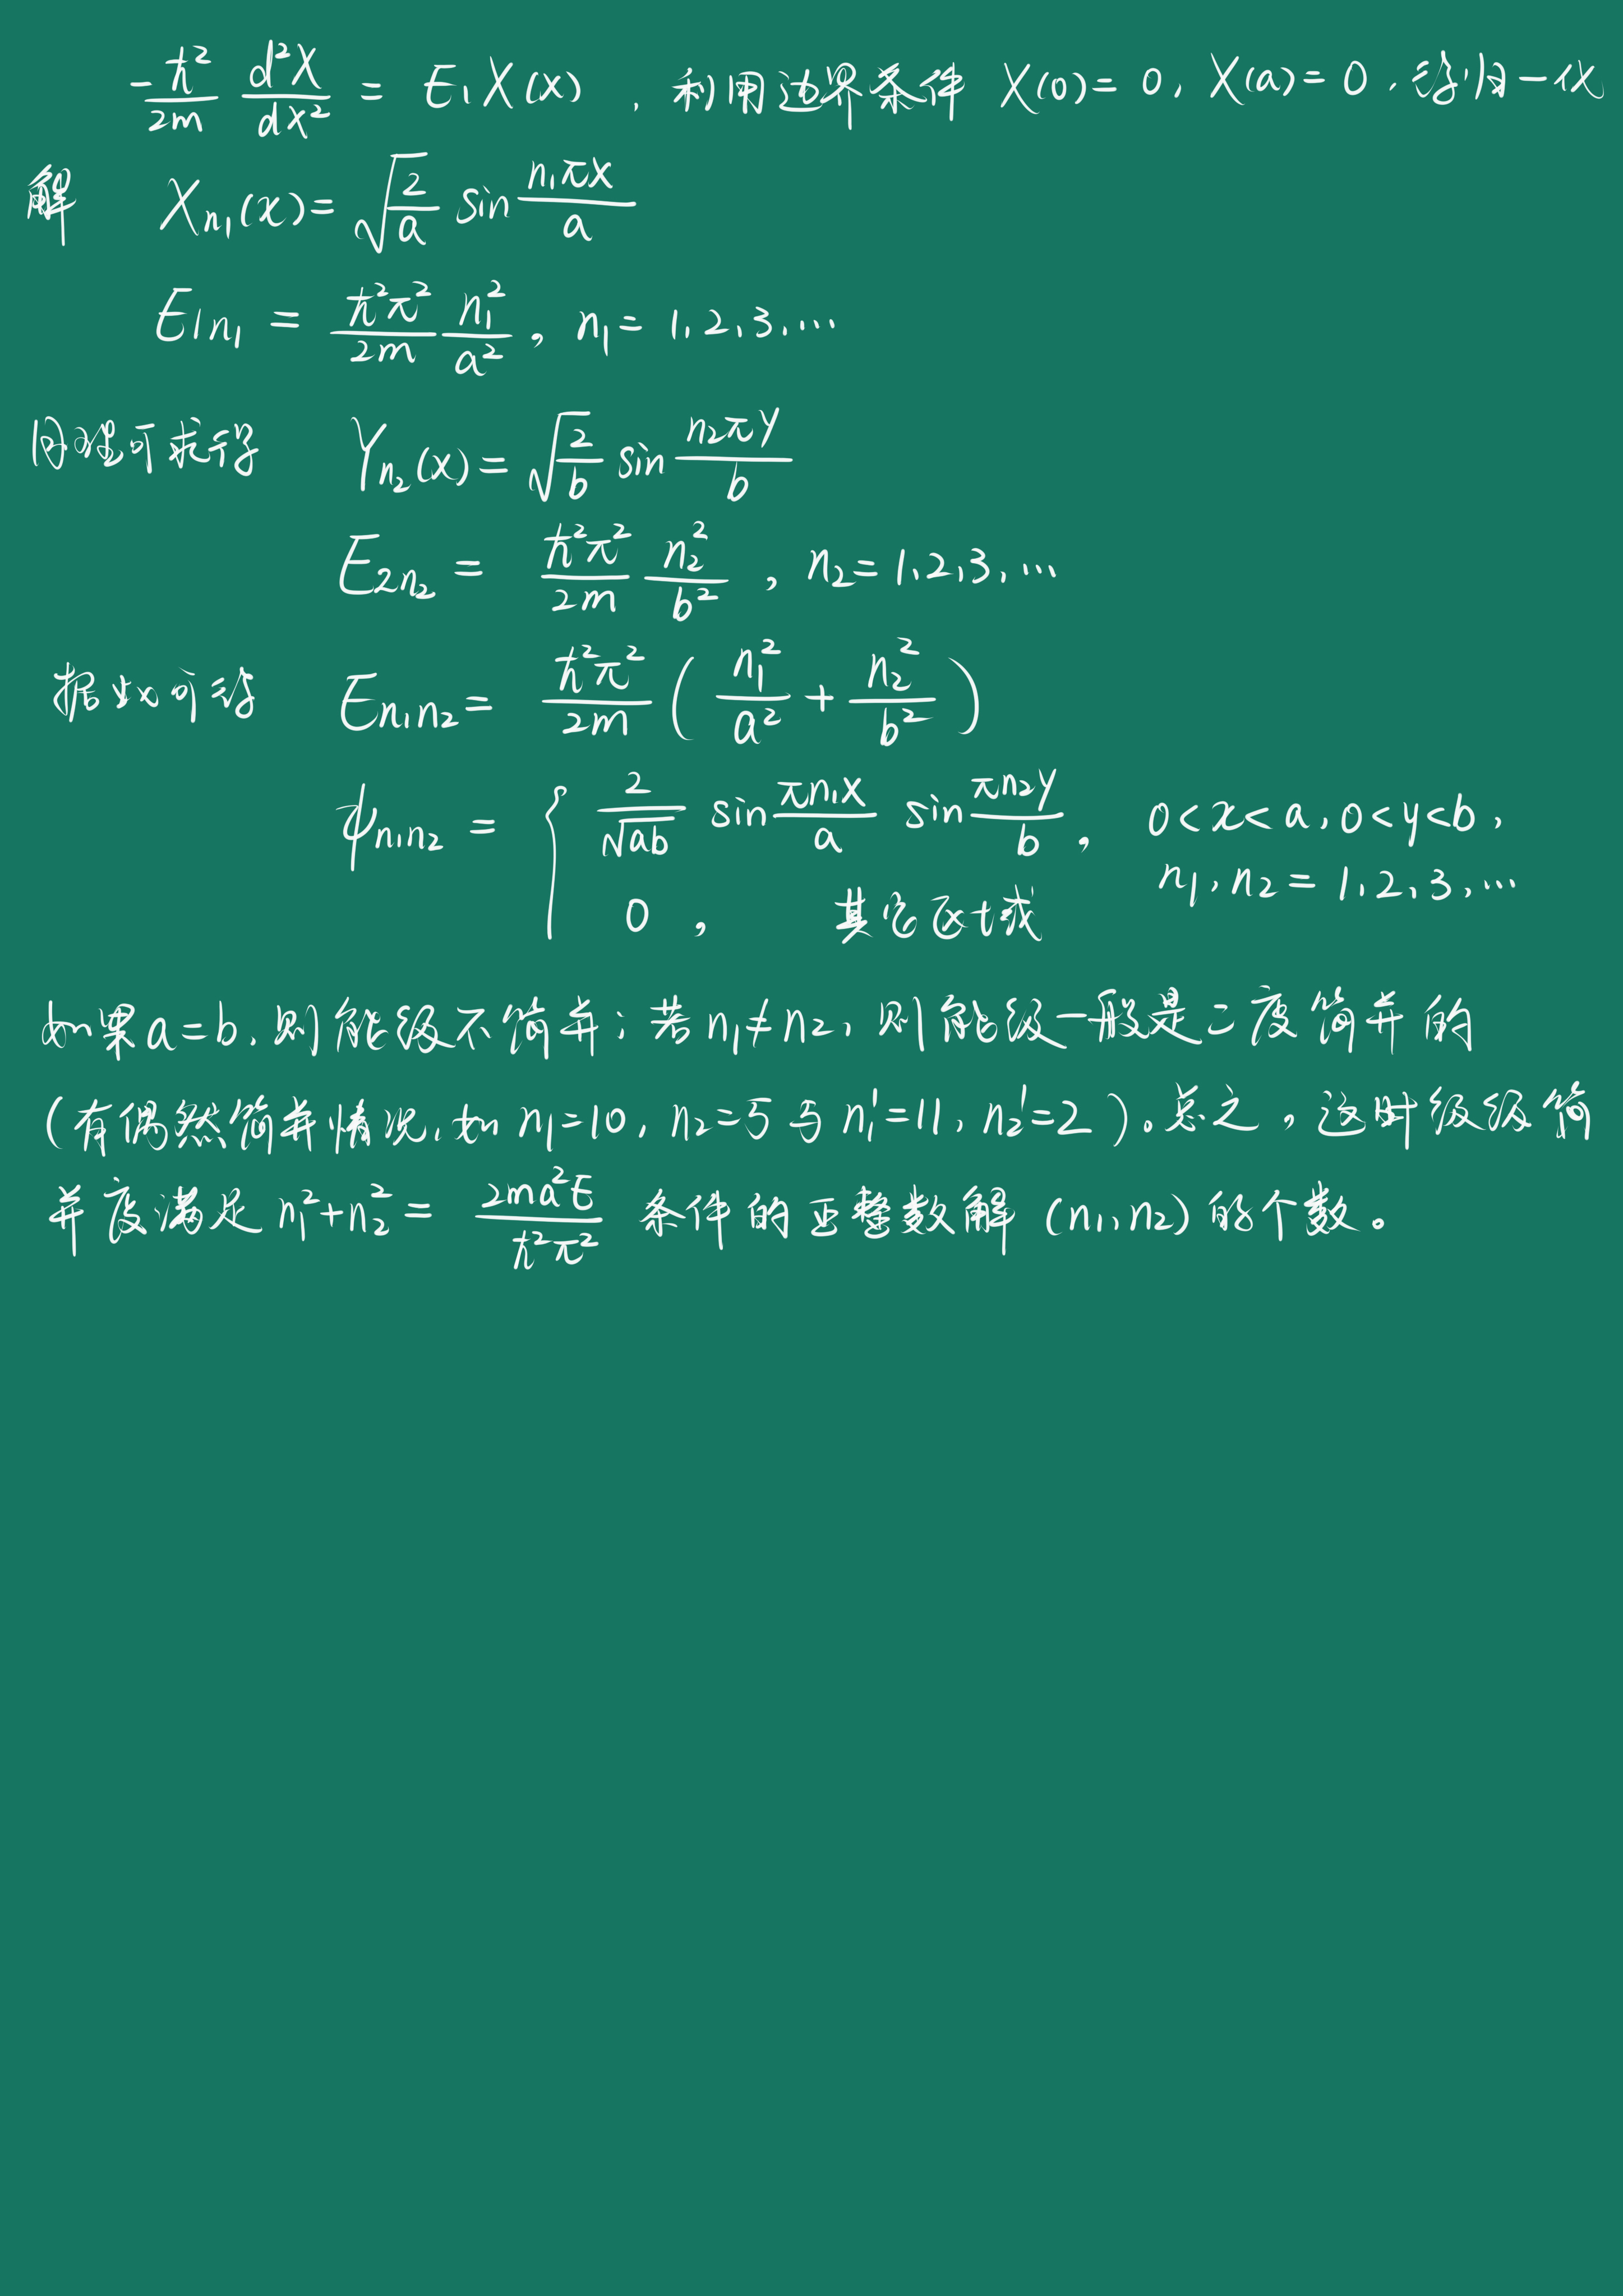 -ħ²/2m d²X/dx² = E₁X(x) , 利用边界条件 X(0)= 0, X(a)= 0 , 得归一化
解 Xn₁(x)= √(2/a) sin n₁πx/a
E1n₁ = ħ²π²/2m n₁²/a² , n₁= 1,2,3,…
同理可求得 Yn₂(x)= √(2/b) sin n₂πy/b
E2n₂ = ħ²π²/2m n₂²/b² , n₂= 1,2,3,…
据此可得 En₁n₂= ħ²π²/2m ( n₁²/a² + n₂²/b² )
ψn₁n₂ = { 2/√ab sin πn₁x/a sin πn₂y/b , 0<x<a, 0<y<b ,
n₁, n₂ = 1,2,3,…
0 , 其它区域
如果a=b, 则能级不简并; 若n₁≠n₂, 则能级一般是二度简并的
(有偶然简并情况, 如 n₁=10, n₂=5 与 n₁'=11, n₂'=2 )。总之,这时级级简
并度满足 n₁²+n₂² = 2ma²E/ħ²π² 条件的正整数解 (n₁,n₂) 的个数。